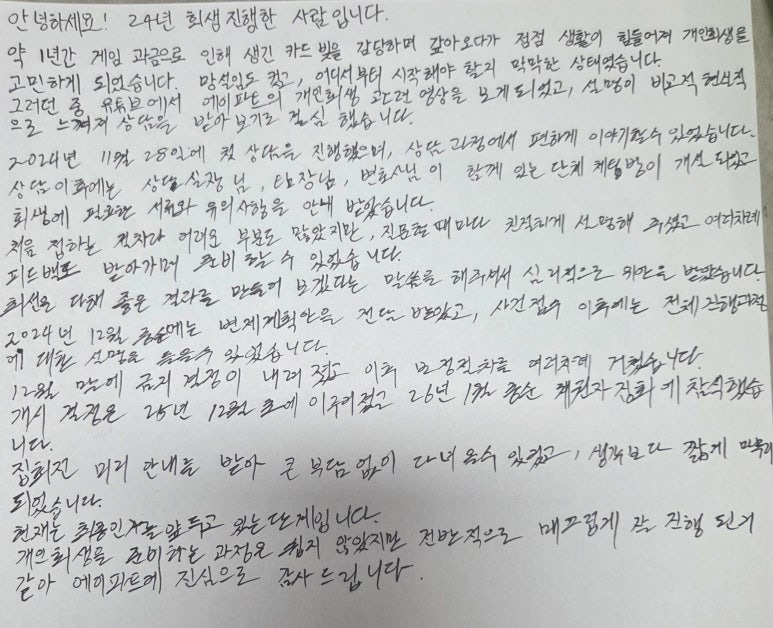 안녕하세요! 24년 회생 진행한 사람입니다.
약 1년간 게임 과금으로 인해 생긴 카드 빚을 감당하며 갚아오다가 점점 생활이 힘들어져 개인회생을
고민하게 되었습니다. 망설임도 컸고, 어디서부터 시작해야 할지 막막한 상태였습니다.
그러던 중 유튜브에서 에이파트의 개인회생 관련 영상을 보게되었고, 설명이 비교적 현실적
으로 느껴져 상담을 받아보기로 결심 했습니다.
2024년 11월 28일에 첫 상담을 진행했으며, 상담 과정에서 편하게 이야기할수 있었습니다.
상담이후에는 상담실장님, 팀장님, 변호사님이 함께 있는 단체 채팅방이 개설 되었고
회생에 필요한 서류와 유의사항을 안내 받았습니다.
처음 접하는 절차라 어려운 부분도 많았지만, 질문할 때마다 친절하게 설명해 주셨고 여러차례
피드백도 받아가며 준비 할 수 있었습니다.
최선을 다해 좋은 결과를 만들어 보겠다는 말씀을 해주셔서 심리적으로 위안을 받았습니다.
2024년 12월 중순에는 변제계획안을 전달 받았고, 사건접수 이후에는 전체 진행과정
에 대한 설명을 들을수 있었습니다.
12월 말에 금지 결정이 내려 졌고 이후 보정절차를 여러차례 거쳤습니다.
개시 결정은 25년 12월 초에 이루어졌고 26년 1월 중순 채권자 집회에 참석했습
니다.
집회전 미리 안내를 받아 큰 부담 없이 다녀 올수 있었고, 생각보다 짧게 마무리
되었습니다.
현재는 최종인가를 앞두고 있는 단계입니다.
개인회생을 준비하는 과정은 쉽지 않았지만 전반적으로 매끄럽게 잘 진행 된거
같아 에이파트에 진심으로 감사 드립니다.